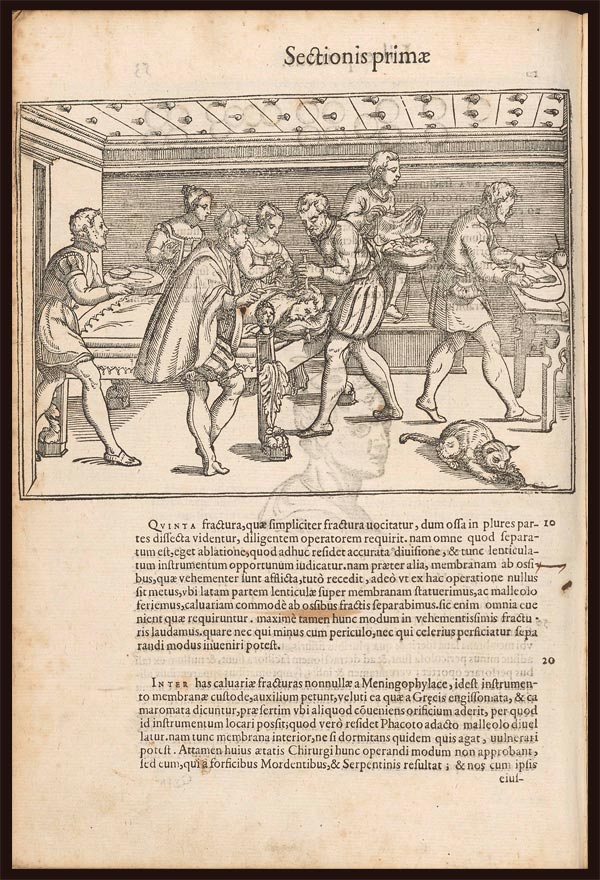 Sectionis primæ
QVINTA fractura, quæ simpliciter fractura uocitatur, dum ossa in plures par- 10
tes dissecta videntur, diligentem operatorem requirit. nam omne quod separa-
tum est, eget ablatione, quod adhuc residet accurata diuisione, & tunc lenticula-
tum instrumentum opportunum iudicatur. nam præter alia, membranam ab ossi
bus, quæ vehementer sunt afflicta, tutò recedit, adeò vt ex hac operatione nullus
sit metus, vbi latam partem lenticulæ super membranam statuerimus, ac malleolo
feriemus, caluariam commodè ab ossibus fractis separabimus. sic enim omnia eue
nient quæ requiruntur. maximè tamen hunc modum in vehementissimis fractu-
ris laudamus. quare nec qui minus cum periculo, nec qui celerius perficiatur sepa
randi modus inueniri potest.
20
INTER has caluariæ fracturas nonnullæ a Meningophylace, idest instrumen-
to membranæ custode, auxilium petunt, veluti ea quæ a Græcis engissomata, & ca
maromata dicuntur, præsertim vbi aliquod cōueniens orificium aderit, per quod
id instrumentum locari possit; quod verò residet Phacoto adacto malleolo diuel
latur. nam tunc membrana interior, ne si dormitans quidem quis agat, vulnerari
potest. Attamen huius ætatis Chirurgi hunc operandi modum non approbant,
sed eum, qui a forficibus Mordentibus, & Serpentinis resultat; & nos cum ipsis
eius-